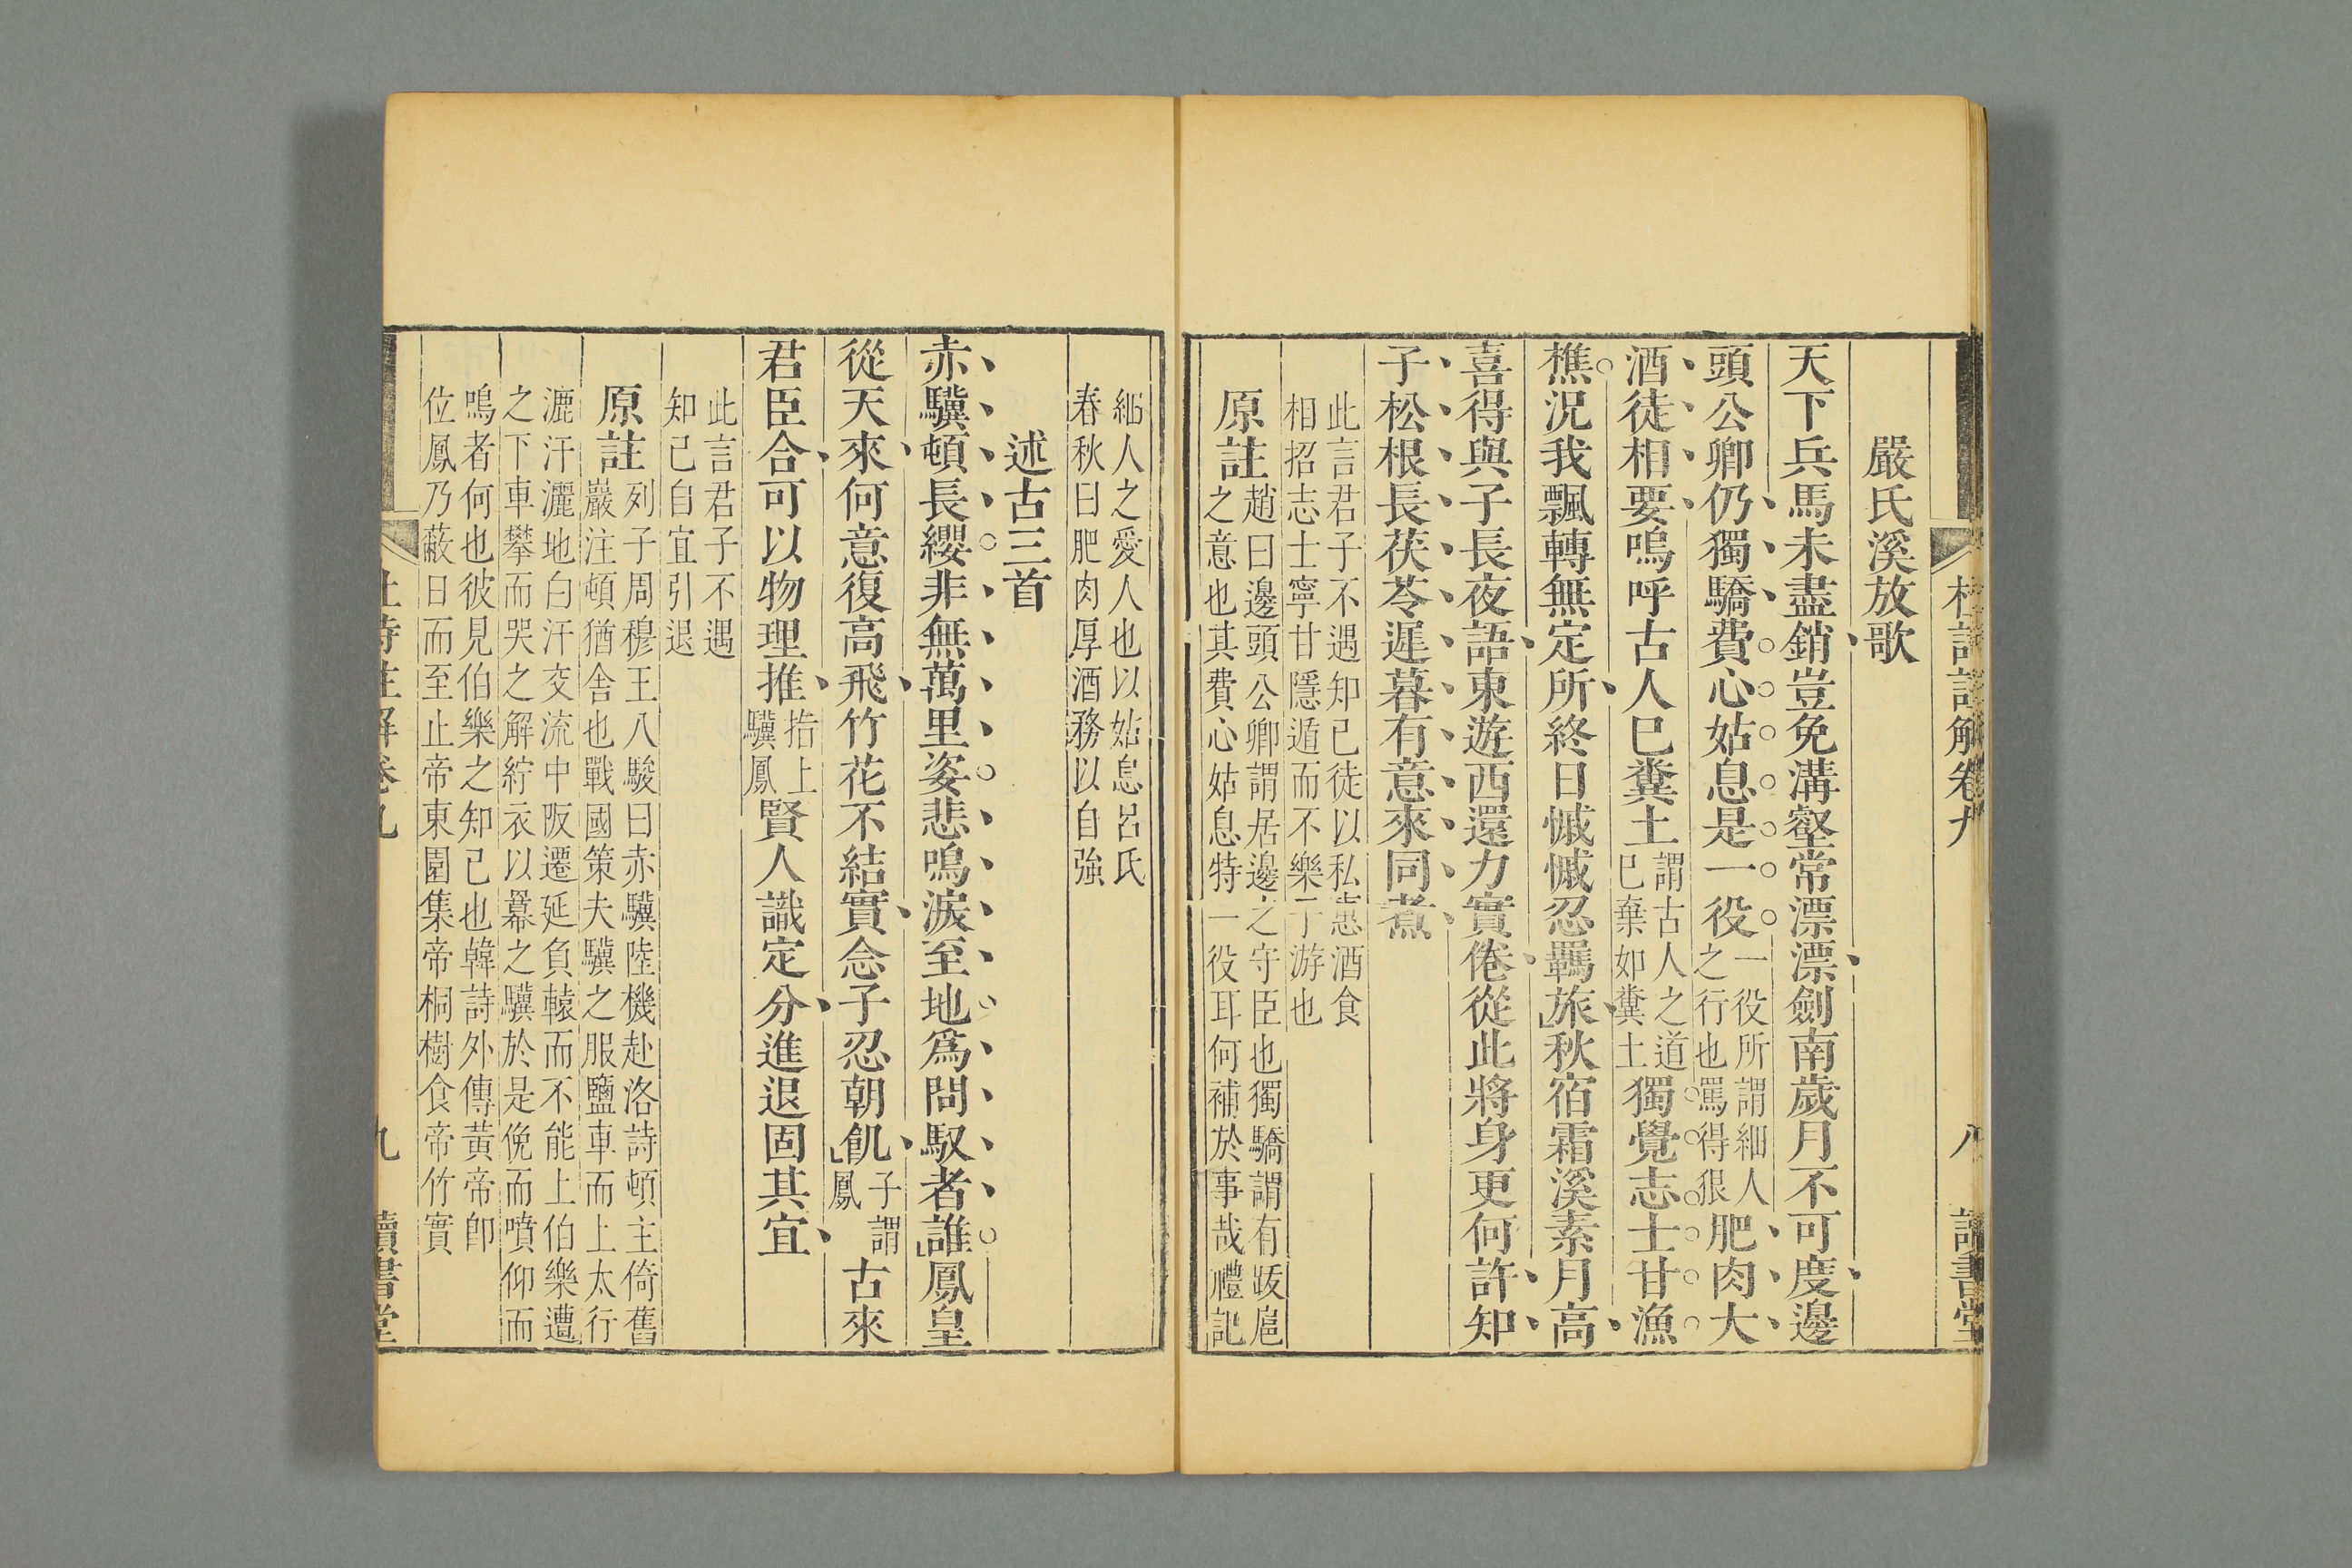 嚴氏溪放歌
天下兵馬未盡銷豈免溝壑常漂漂劍南歲月不可度邊
頭公卿仍獨驕費心姑息是一役一役所謂細人之行也罵得狠肥肉大
酒徒相要嗚呼古人已糞土謂古人之道已棄如糞土獨覺志士甘漁
樵況我飄轉無定所終日慽慽忍羈旅秋宿霜溪素月高
喜得與子長夜語東遊西還力實倦從此將身更何許知
子松根長茯苓遲暮有意來同煮
此言君子不遇知已徒以私惠酒食
相招志士寧甘隱遁而不樂于游也
原註趙曰邊頭公卿謂居邊之守臣也獨驕謂有跋扈
之意也其費心姑息特一役耳何補於事哉禮記
細人之愛人也以姑息呂氏
春秋曰肥肉厚酒務以自強
述古三首
赤驥頓長纓非無萬里姿悲鳴淚至地為問馭者誰鳳皇
從天來何意復高飛竹花不結實念子忍朝飢子謂鳳古來
君臣合可以物理推指上驥鳳賢人識定分進退固其宜
此言君子不遇
知已自宜引退
原註列子周穆王八駿曰赤驥陸機赴洛詩頓主倚舊
巖注頓猶舍也戰國策夫驥之服鹽車而上太行
漉汗灑地白汗交流中阪遷延負轅而不能上伯樂遭
之下車攀而哭之解紵衣以羃之驥於是俛而噴仰而
鳴者何也彼見伯樂之知已也韓詩外傳黃帝卽
位鳳乃蔽日而至止帝東園集帝桐樹食帝竹實
杜詩註解卷九
八
讀書堂
杜詩註解卷九
九
讀書堂